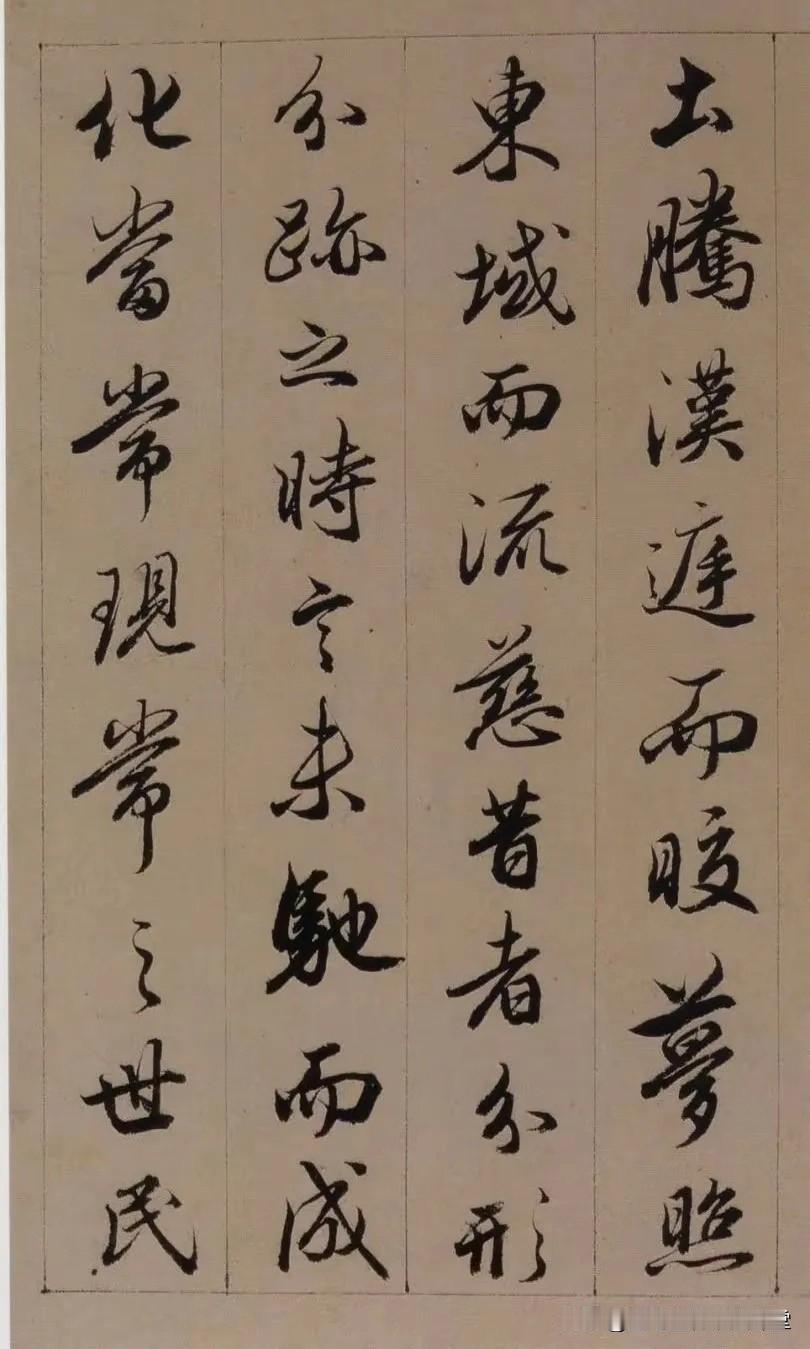 土騰漢遅而晈夢照
東域而流慈昔者分形
分跡之時言未馳而成
化當常現常之世民